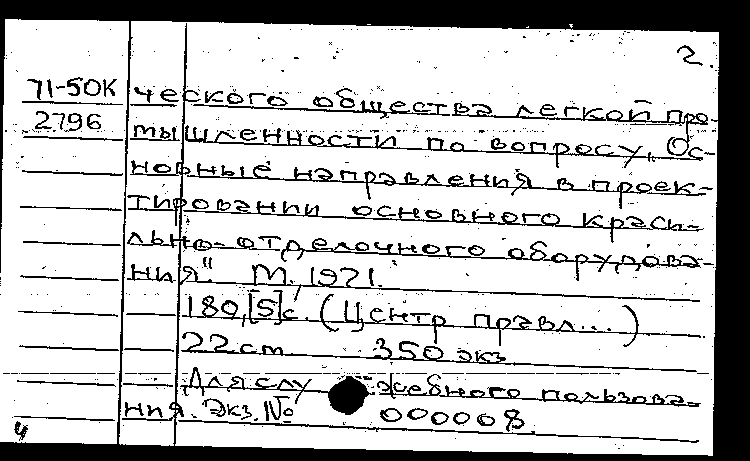 2.
71-50К ческого общества легкой про-
2796 мышленности по вопросу „Ос-
новные направления в проек-
тировании основного краси-
льно-отделочного оборудова-
ния" М., 1971.
180,[5]с. (Центр правл...)
22 cm 350 экз
Для служебного пользова-
ния. Экз. № 000008.
4